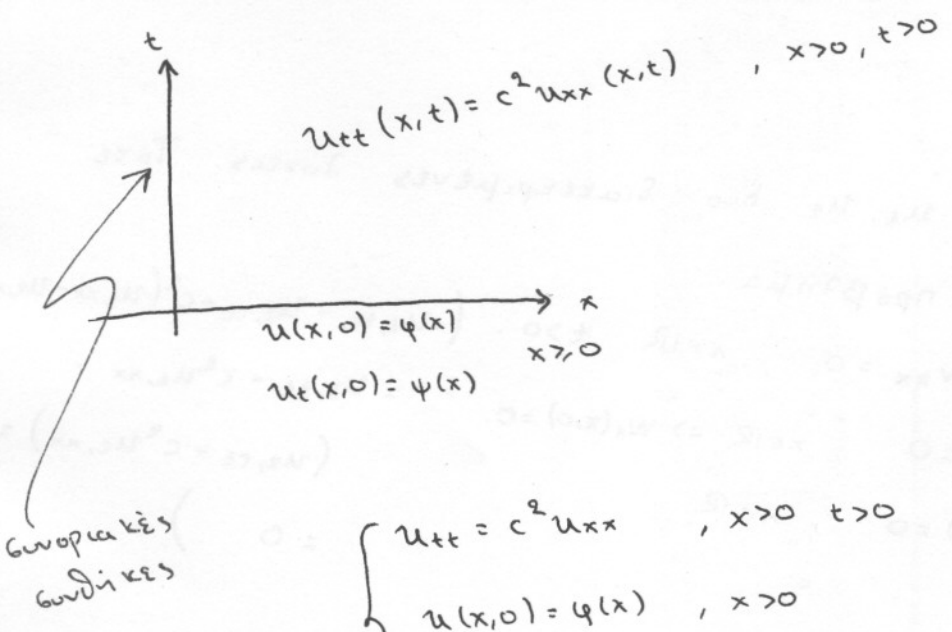 t
u_tt (x,t) = c² u_xx (x,t) , x>0, t>0
x
u(x,0) = φ(x)
x≥0
u_t(x,0) = ψ(x)
συνοριακές
συνθήκες
u_tt = c² u_xx , x>0 t>0
u(x,0) = φ(x) , x>0